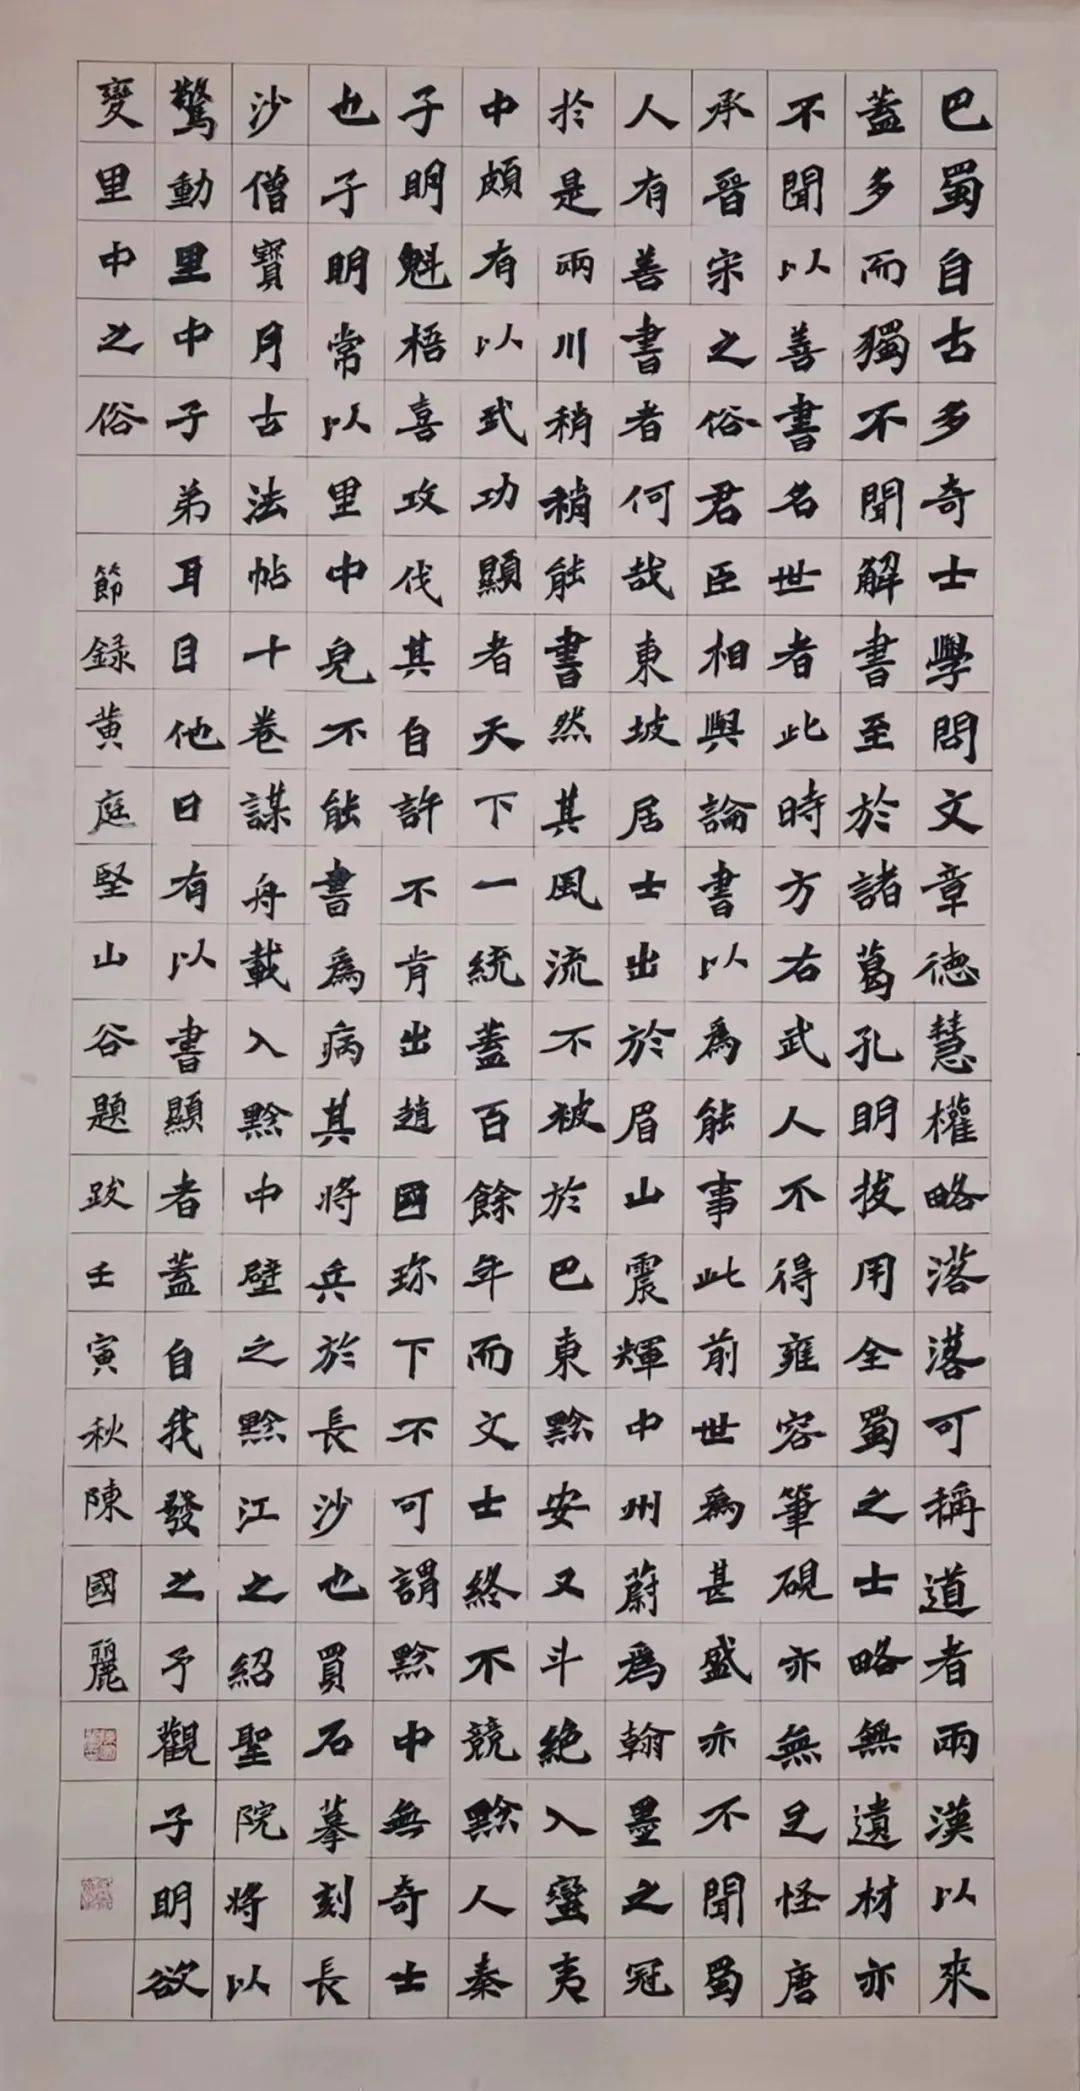 巴蜀自古多奇士學問文章德慧權略落落可稱道者兩漢以來
蓋多而獨不聞解書至於諸葛孔明拔用全蜀之士略無遺材亦
不聞以善書名世者此時方右武人不得雍容筆硯亦無足怪唐
承晉宋之俗君臣相與論書以為能事此前世為甚盛亦不聞蜀
人有善書者何哉東坡居士出於眉山震輝中州蔚為翰墨之冠
於是兩川稍稍能書然其風流不被於巴東黔安又斗絕入蠻夷
中頗有以武功顯者天下一統蓋百餘年而文士終不競黔人秦
子明魁梧喜攻伐其自許不肯出趙國珍下不可謂黔中無奇士
也子明常以里中兒不能書為病其將兵於長沙也買石摹刻長
沙僧寶月古法帖十卷謀舟載入黔中壁之黔江之紹聖院將以
驚動里中子弟耳目他日有以書顯者蓋自我發之予觀子明欲
變里中之俗 節録黃庭堅山谷題跋壬寅秋陳國麗